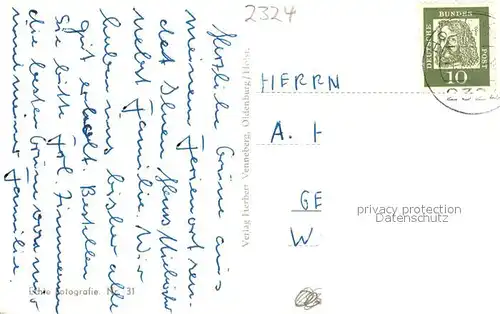 2324
DEUTSCHE BUNDESPOST
10
232
Herzliche Grüße aus
meinem Ferienort sen-
det Ihnen
nebst Familie. Wir
haben uns bisher alle
gut erholt. Bestellen
Sie bitte Frl. Zimmermann
die besten Grüße von mir
und meiner Familie.
Echte Fotografie. Nr. 31
Verlag Herbert Venneberg, Oldenburg/Holst.
HERRN
A. H
GE
W
privacy protection
Datenschutz